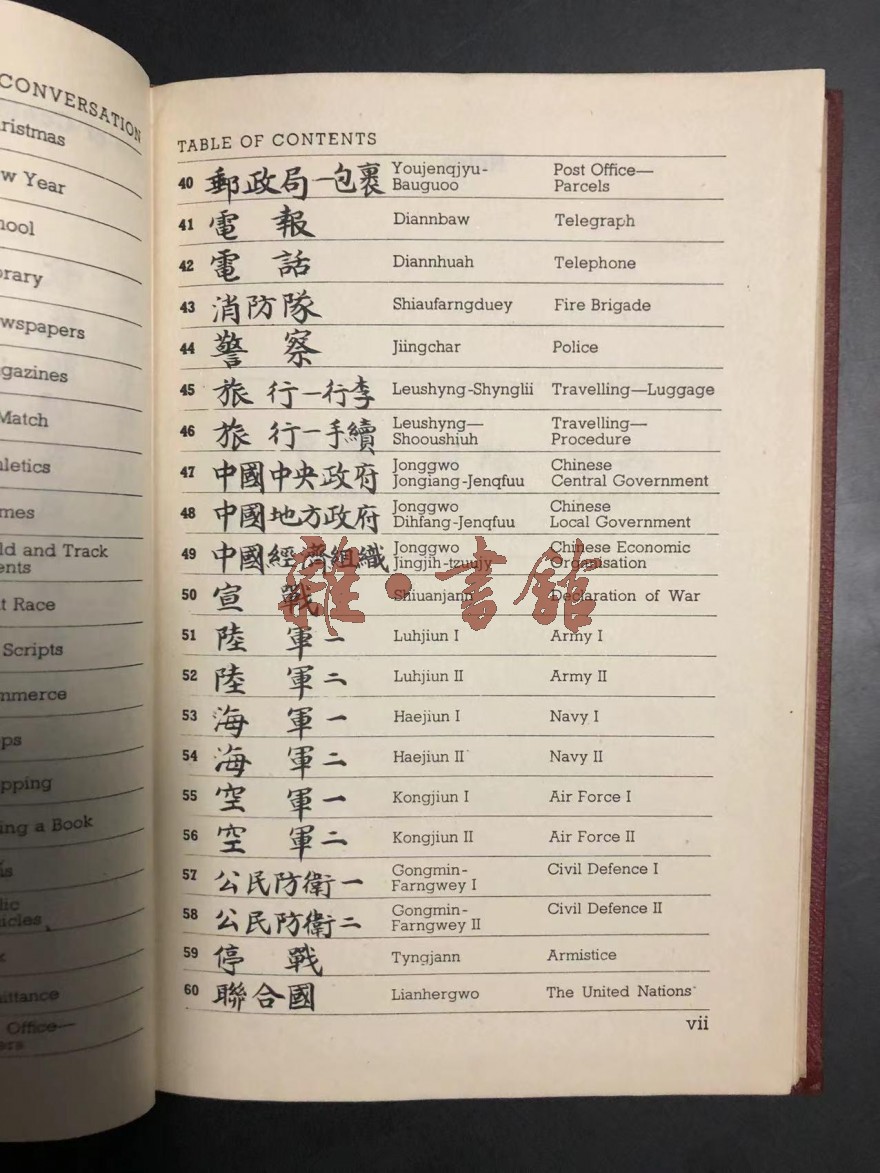 CONVERSATION
ristmas
w Year
hool
rary
wspapers
gazines
Match
letics
mes
ld and Track
ents
t Race
Scripts
mmerce
ps
pping
ing a Book
lic
icles
ittance
Office—
ers
TABLE OF CONTENTS
40 郵政局一包裹 Youjenqjyu-Bauguoo Post Office—Parcels
41 電報 Diannbaw Telegraph
42 電話 Diannhuah Telephone
43 消防隊 Shiaufarngduey Fire Brigade
44 警察 Jiingchar Police
45 旅行一行李 Leushyng-Shynglii Travelling—Luggage
46 旅行一手續 Leushyng—Shooushiuh Travelling—Procedure
47 中國中央政府 Jonggwo Jongiang-Jenqfuu Chinese Central Government
48 中國地方政府 Jonggwo Dihfang-Jenqfuu Chinese Local Government
49 中國經濟組織 Jonggwo Jingjih-tzuujy Chinese Economic Organisation
50 宣戰 Shiuanjann Declaration of War
51 陸軍一 Luhjiun I Army I
52 陸軍二 Luhjiun II Army II
53 海軍一 Haejiun I Navy I
54 海軍二 Haejiun II Navy II
55 空軍一 Kongjiun I Air Force I
56 空軍二 Kongjiun II Air Force II
57 公民防衛一 Gongmin-Farngwey I Civil Defence I
58 公民防衛二 Gongmin-Farngwey II Civil Defence II
59 停戰 Tyngjann Armistice
60 聯合國 Lianhergwo The United Nations
vii
雜·書館